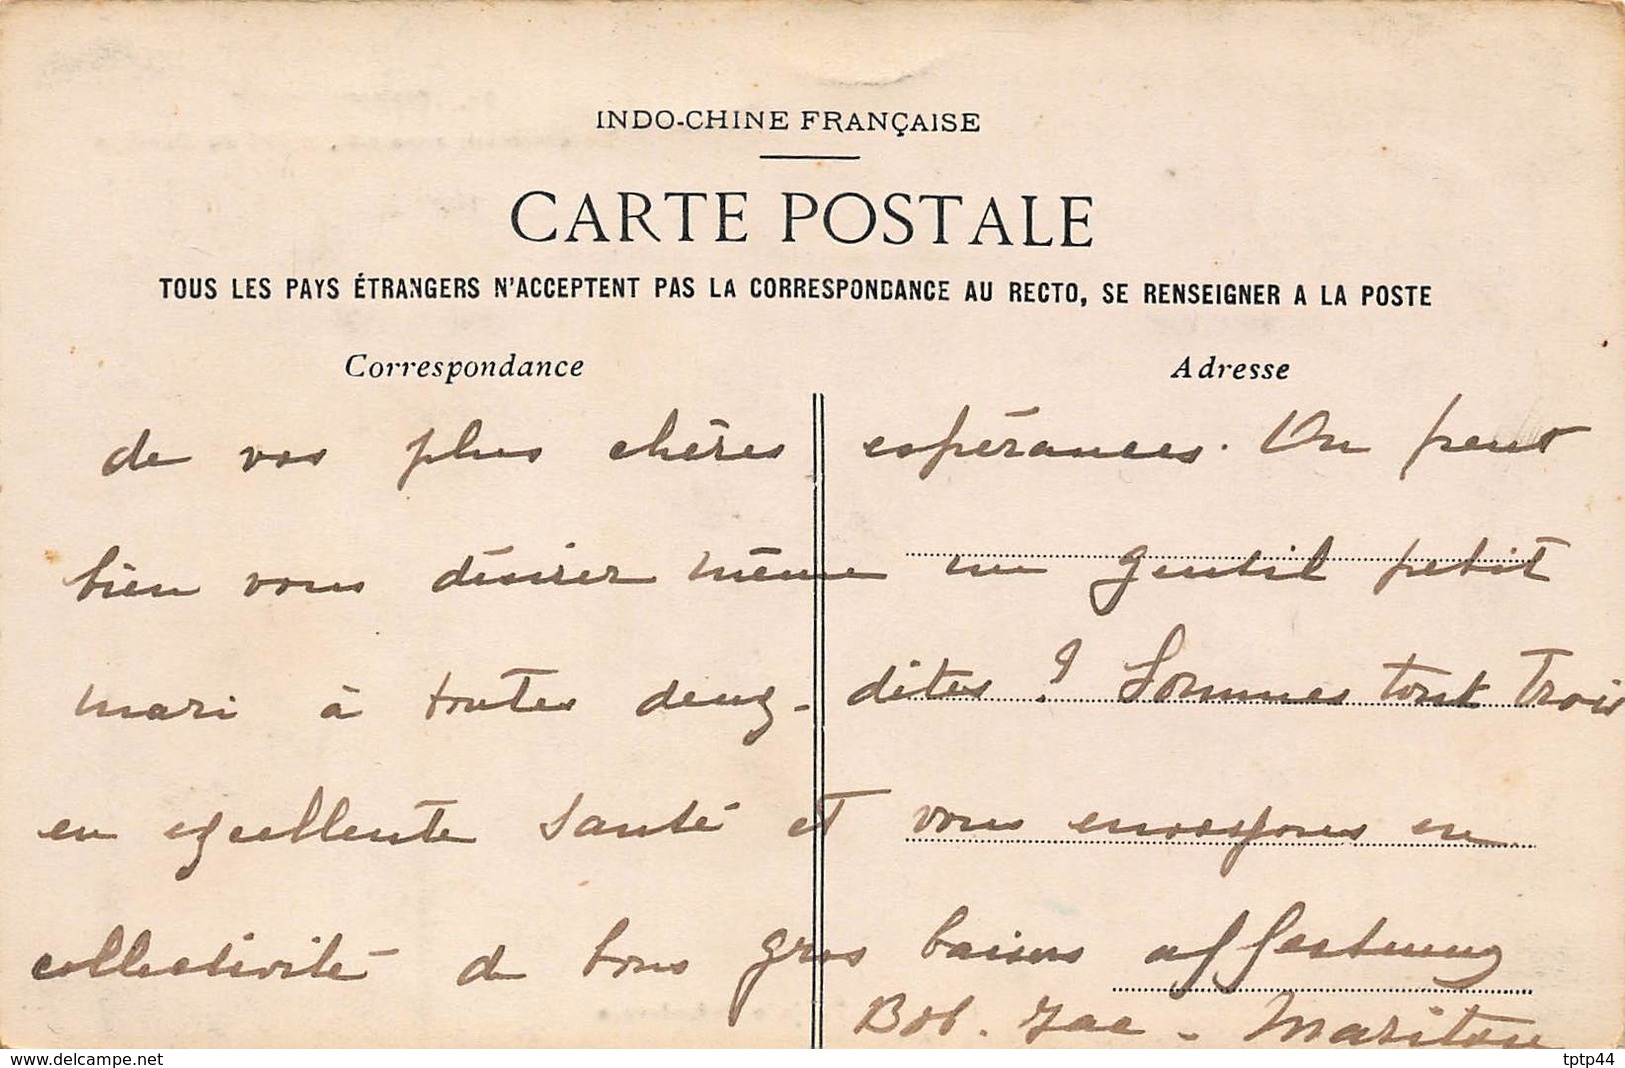 INDO-CHINE FRANÇAISE
CARTE POSTALE
TOUS LES PAYS ÉTRANGERS N'ACCEPTENT PAS LA CORRESPONDANCE AU RECTO, SE RENSEIGNER A LA POSTE
Correspondance Adresse
de vos plus chères espérances. On peut
bien vous désirer même un gentil petit
mari à toutes deux - dites ? Sommes tout trois
en excellente santé et vous envoyons en
collectivité de bons gros baisers affectueux
Bob. Jac - Maritou
https://www.delcampe.net
tptp44